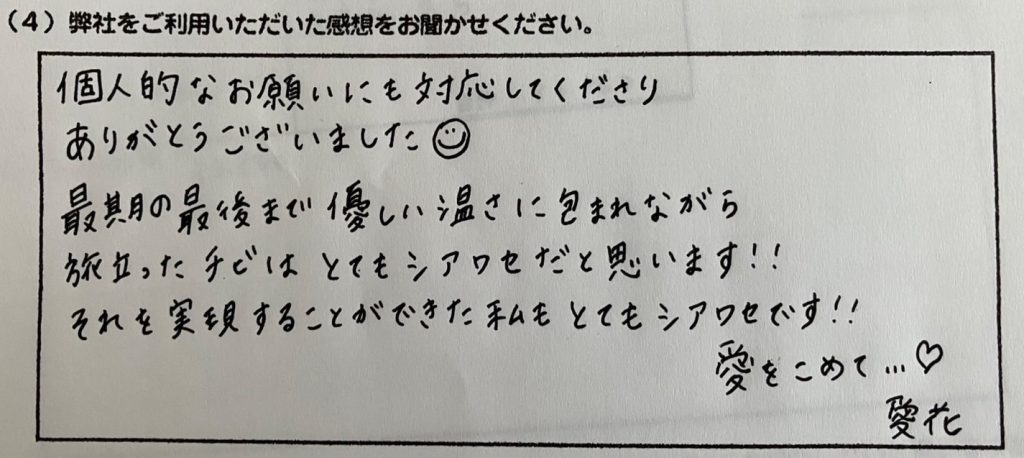 （4）弊社をご利用いただいた感想をお聞かせください。
個人的なお願いにも対応してくださり
ありがとうございました☺
最期の最後まで優しい温さに包まれながら
旅立ったチビは とてもシアワセだと思います!!
それを実現することができた私も とてもシアワセです!!
愛をこめて…♡
愛花